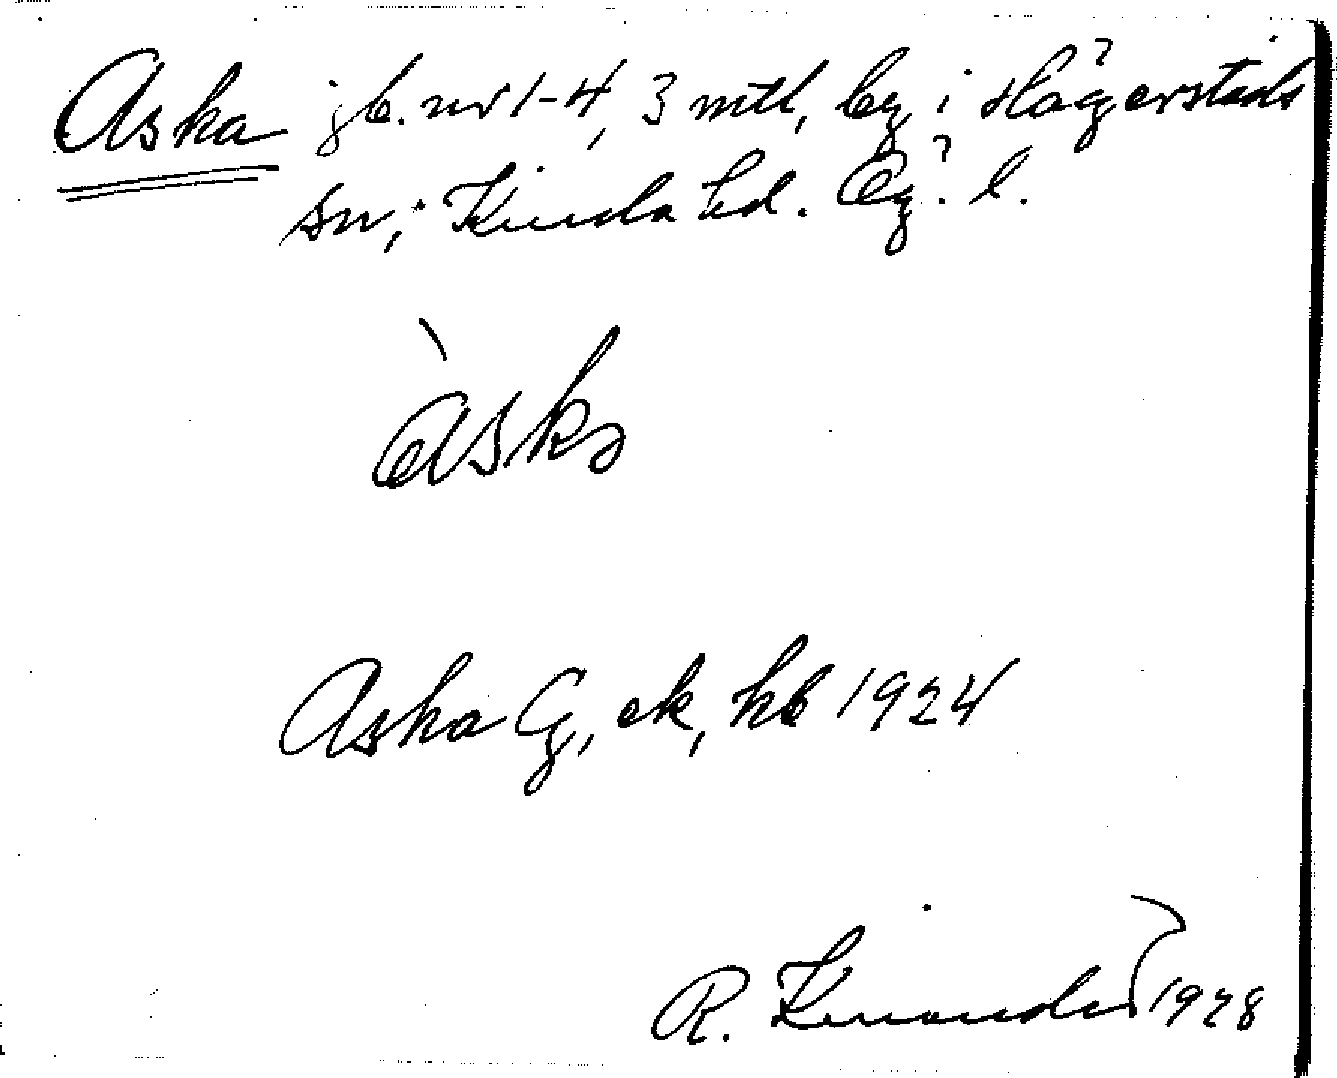 Aska jb. nr 1-4, 3 mtl, by i Hägerstads
sn, Kinda hd. Ög. l.
àska
Aska G, ek, kb 1924
R. Kinander 1928